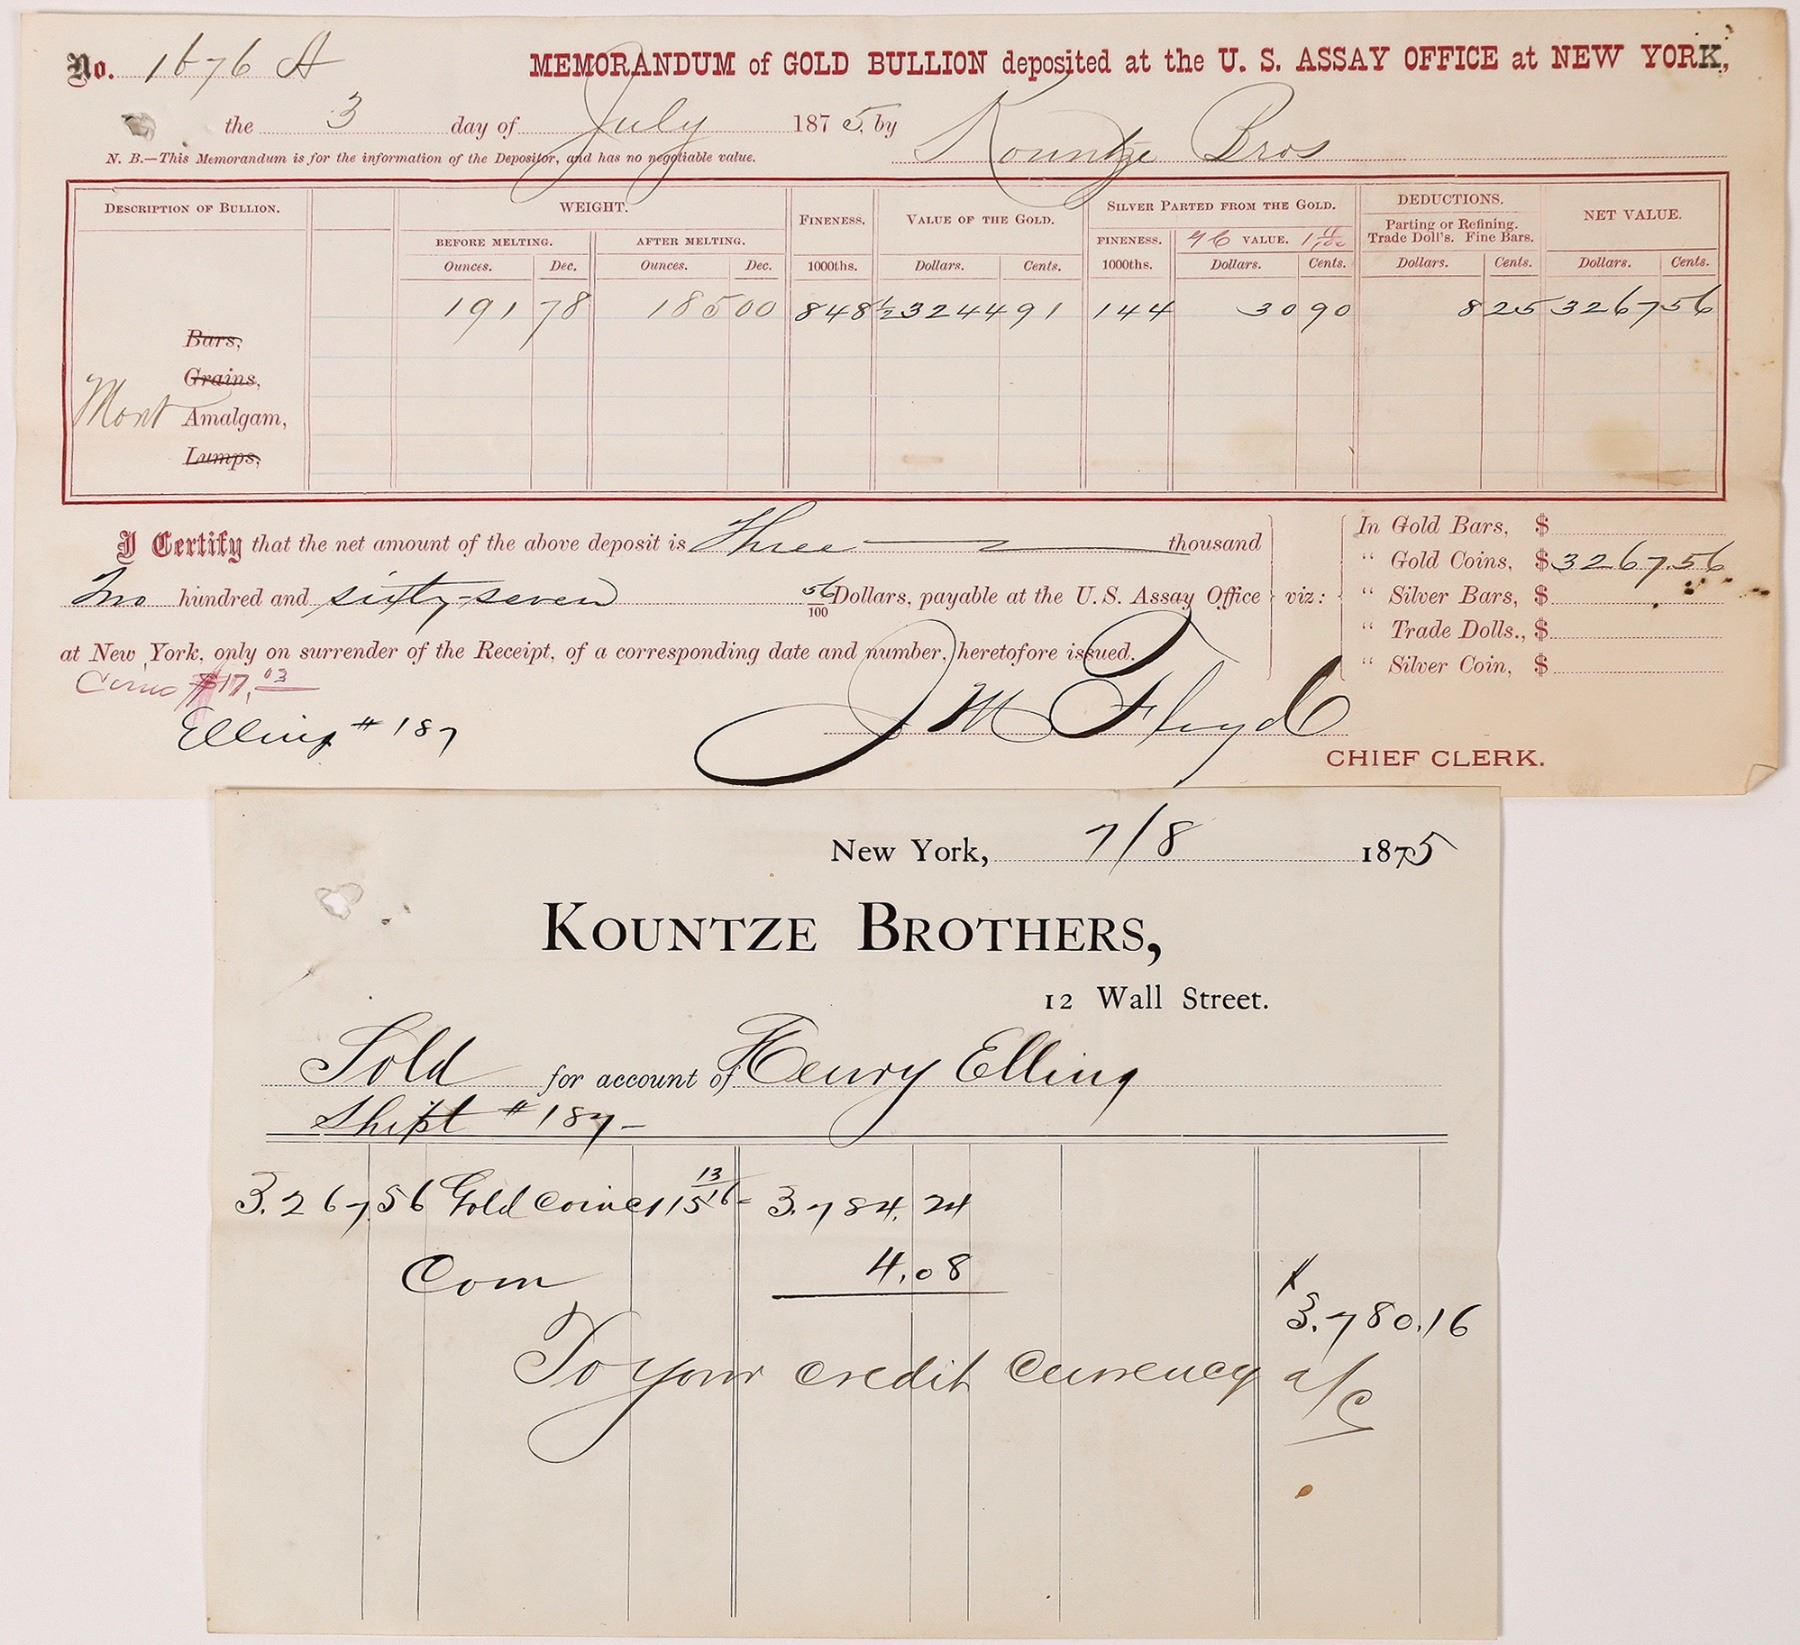 No. 1676 A MEMORANDUM of GOLD BULLION deposited at the U. S. ASSAY OFFICE at NEW YORK,
the 3 day of July 1875, by Kountze Bros
N. B.—This Memorandum is for the information of the Depositor, and has no negotiable value.
DESCRIPTION OF BULLION. WEIGHT. FINENESS. VALUE OF THE GOLD. SILVER PARTED FROM THE GOLD. DEDUCTIONS. NET VALUE.
BEFORE MELTING. AFTER MELTING. FINENESS. VALUE. Parting or Refining. Trade Doll's. Fine Bars.
Ounces. Dec. Ounces. Dec. 1000ths. Dollars. Cents. 1000ths. Dollars. Cents. Dollars. Cents. Dollars. Cents.
191 78 185 00 848½ 3244 91 144 30 90 8 25 3267 56
Bars,
Grains,
Mont Amalgam,
Lumps,
I Certify that the net amount of the above deposit is Three thousand
Two hundred and sixty-seven 56/100 Dollars, payable at the U. S. Assay Office
at New York, only on surrender of the Receipt, of a corresponding date and number, heretofore issued.
viz:
In Gold Bars, $
" Gold Coins, $3267.56
" Silver Bars, $
" Trade Dolls., $
" Silver Coin, $
$17.03
Elling #187
J M Floyd
CHIEF CLERK.
New York, 7/8 1875
KOUNTZE BROTHERS,
12 Wall Street.
Sold for account of Henry Elling
Shipt #187-
3.267.56 Gold Coin @ 115 13/16 - 3.784.24
Com 4.08
$3.780.16
To your credit currency a/c